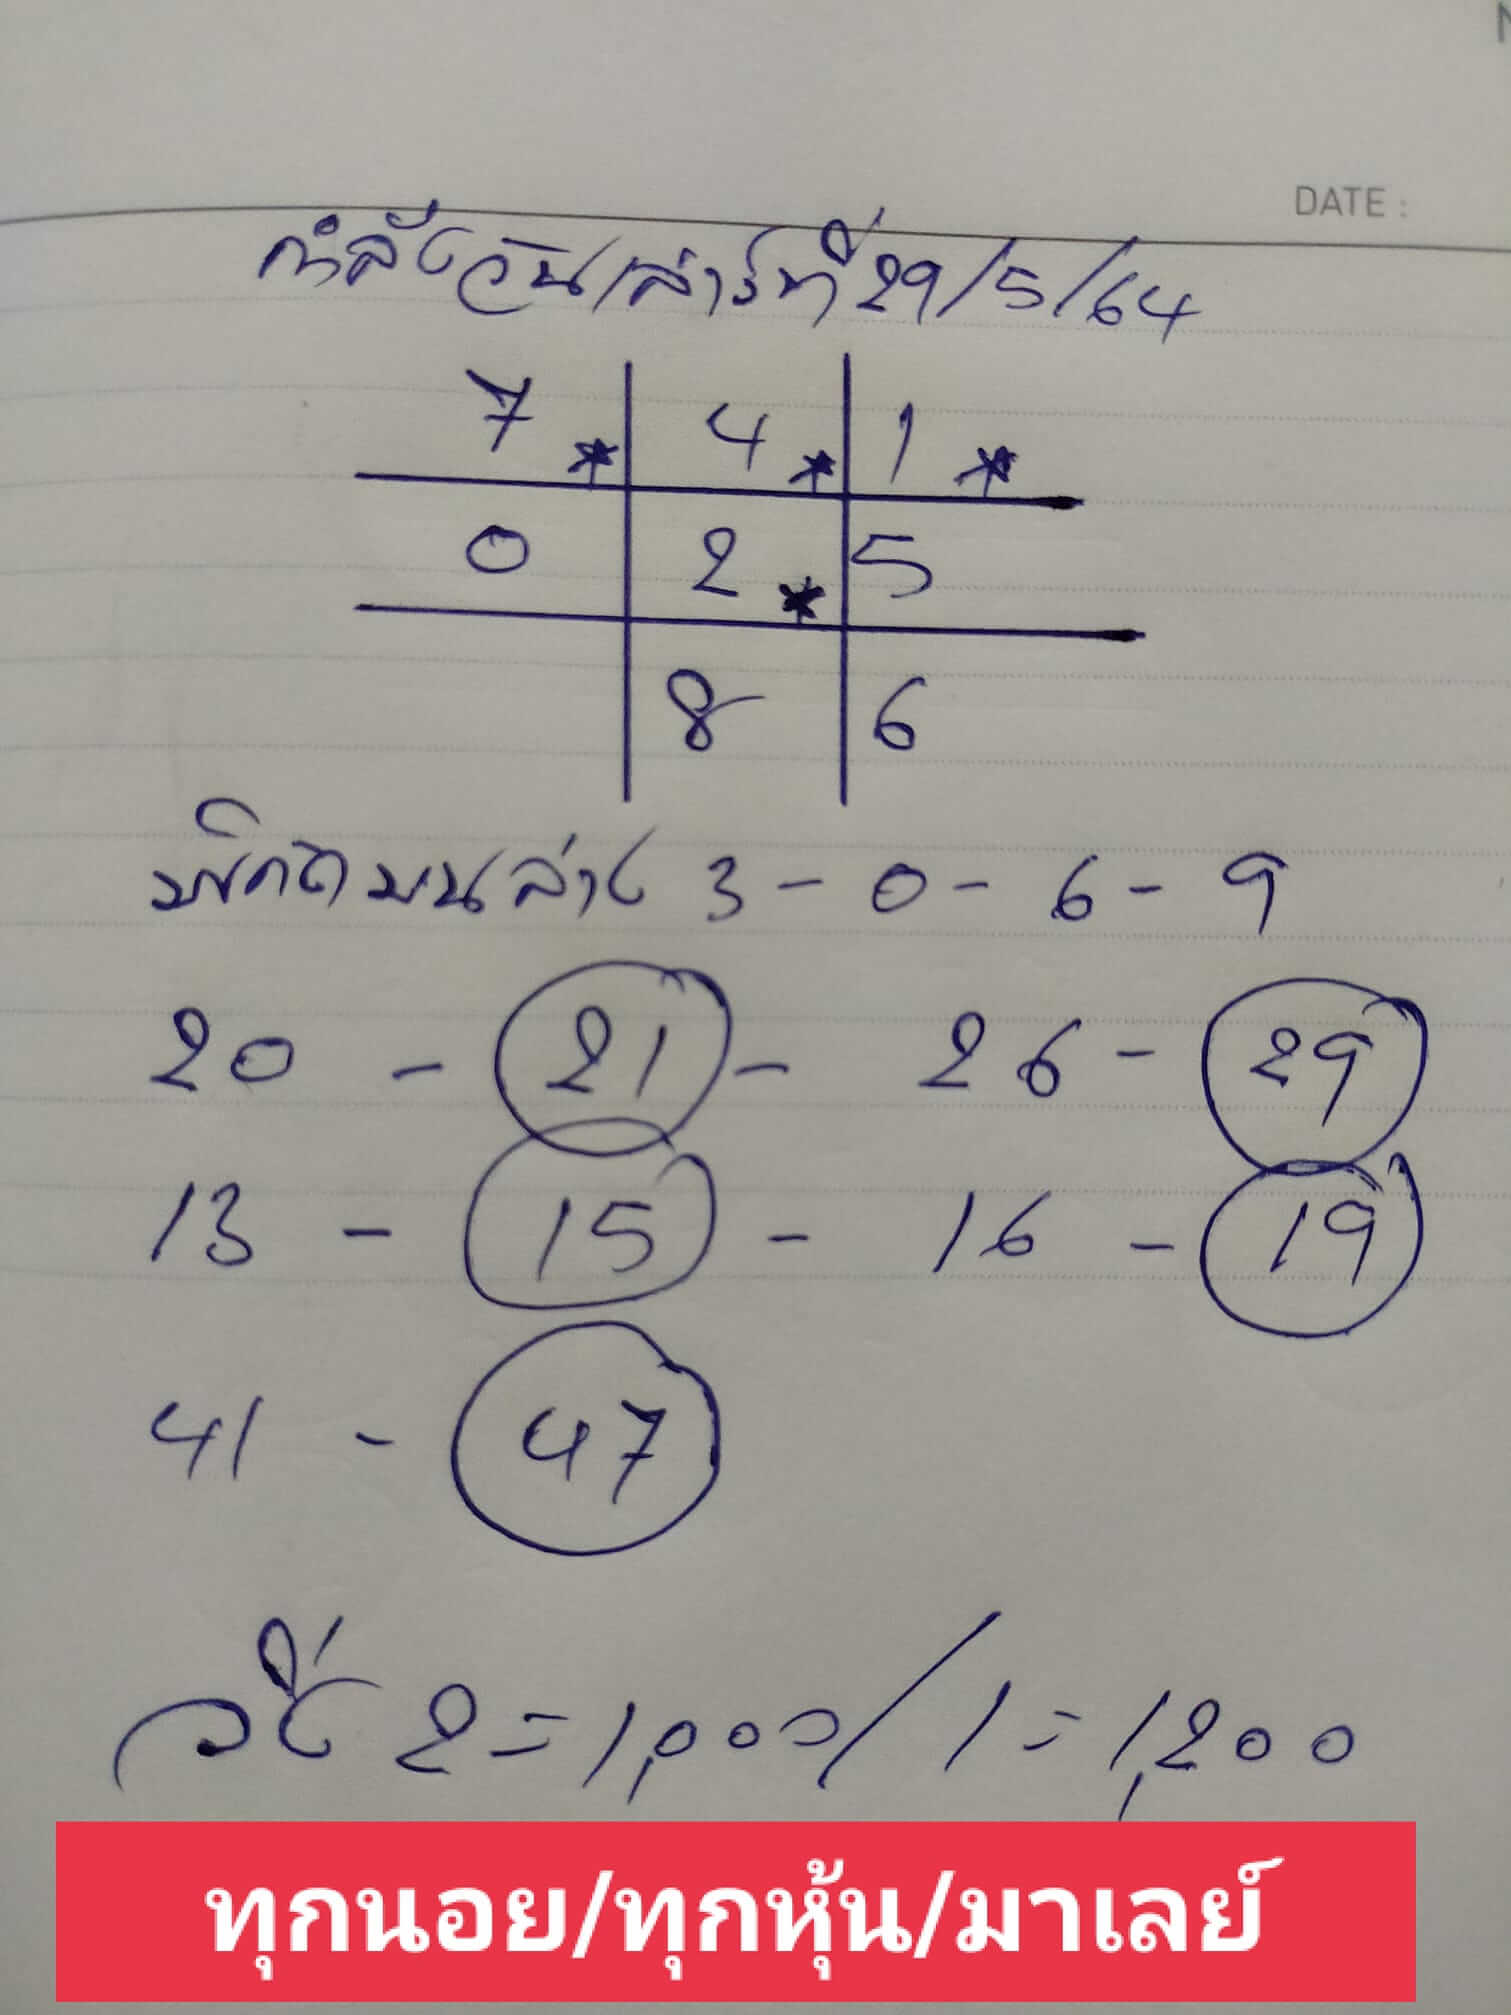 DATE :
กำลังวันเสาร์ที่ 29/5/64
7 * 4 * 1 *
0 2 * 5
8 6
พิกัดบนล่าง 3 - 0 - 6 - 9
20 - 21 - 26 - 29
13 - 15 - 16 - 19
41 - 47
วิ่ง 2 = 1,000 / 1 = 1,200
ทุกนอย/ทุกหุ้น/มาเลย์